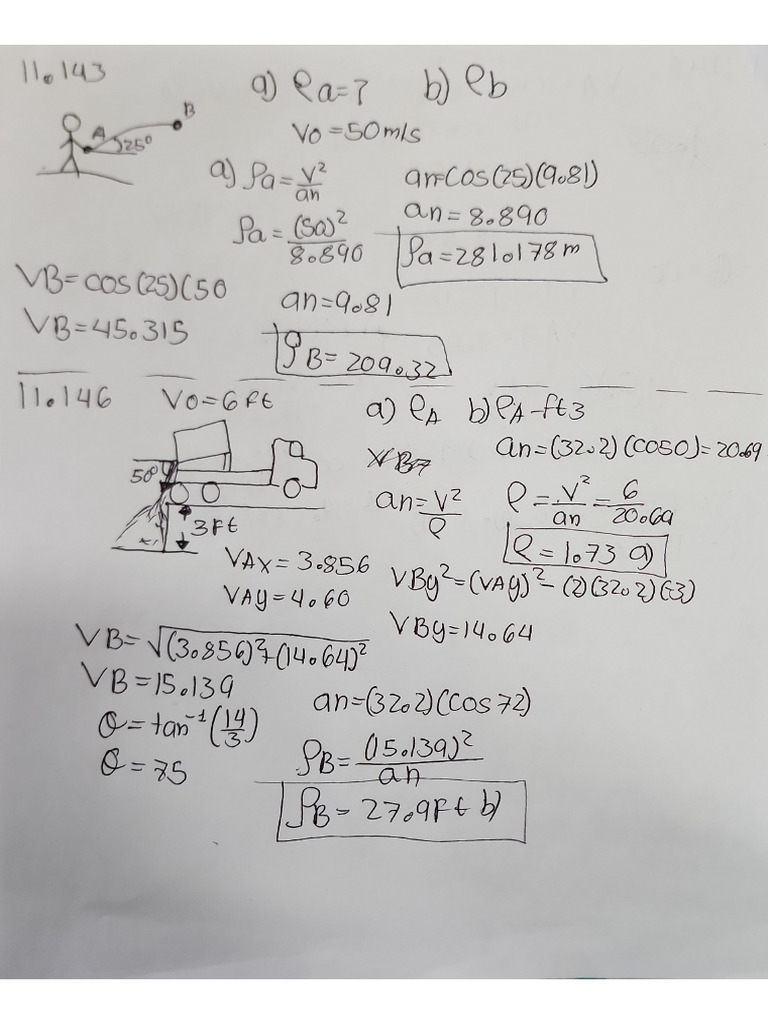 11.143
a) ρa=? b) ρb
Vo=50m/s
A
B
25°
a) ρa=V²/an
an=cos(25)(9.81)
ρa=(50)²/8.890
an=8.890
ρa=281.178m
VB=cos(25)(50
VB=45.315
an=9.81
ρB=209.32
11.146 Vo=6ft a) ρA b) ρA-ft3
50°
3Ft
an=(32.2)(cos0)=20.69
an=V²/ρ
ρ=V²/an=6/20.69
ρ=1.73 a)
VAx=3.856
VAy=4.60
VBy²=(VAy)²-(2)(32.2)(-3)
VBy=14.64
VB=√(3.856)²+(14.64)²
VB=15.139
an=(32.2)(cos72)
θ=tan⁻¹(14/3)
θ=75
ρB=(15.139)²/an
ρB=27.9Ft b)